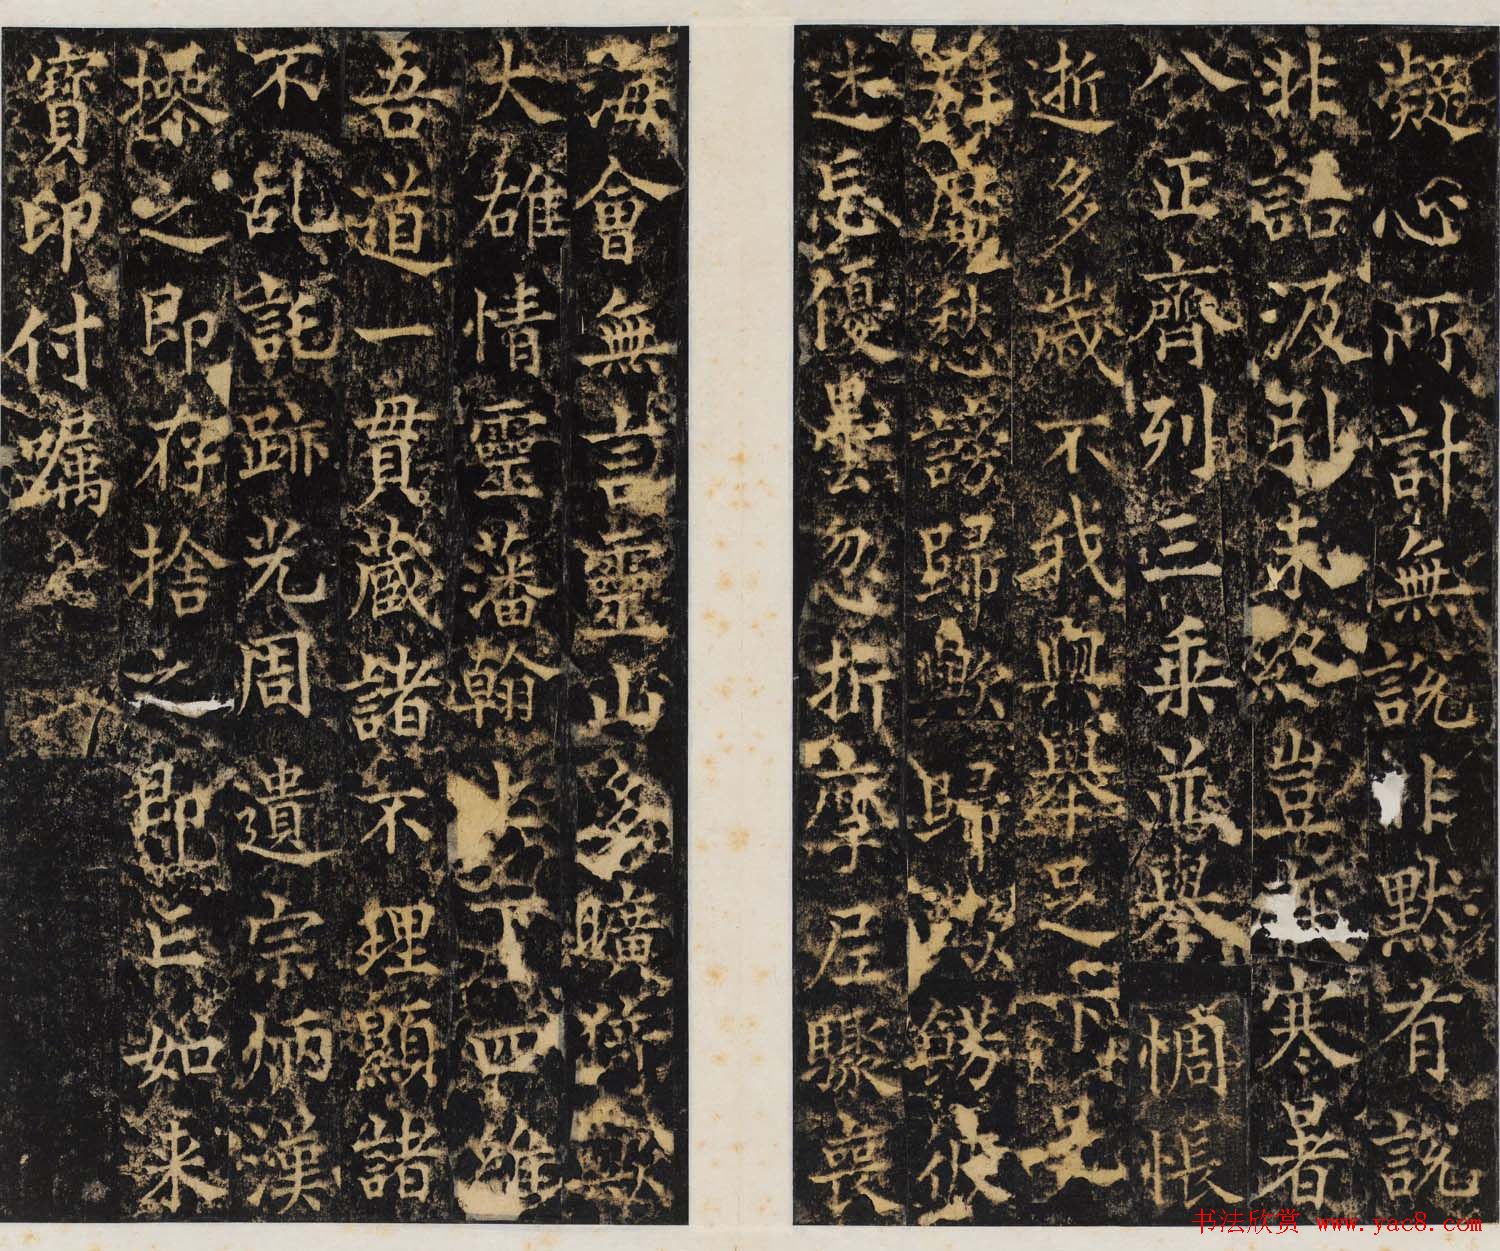 凝心所計無說非默有說
非詰汲引未終豈 寒暑
八正齊列三乘並舉惆悵
逝多歲不我與舉足下足
群魔愁謗歸
迷長優曇忽折摩尼驟喪
海會無言靈山多曠
大雄情靈藩翰上下四維
吾道一貫藏諸不理顯諸
不乱託跡光周遺宗炳漢
操之即存捨之即亡如来
寶印付囑
书法欣赏 www.yac8.com